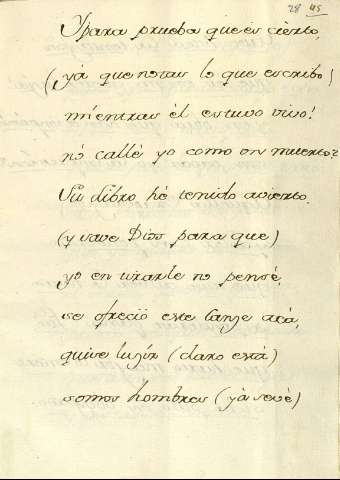 28 45
Ypara prueba que es cierto,
(yá que notas lo que escribo)
mientras él estuvo vivo!
nó callè yo como un muerto?
Su libro hé tenido avierto,
(y save Dios para que)
yo en tirarle no pensé,
se ofreció este lanze acá,
quise luzir (claro está)
somos hombres (yà sevè)